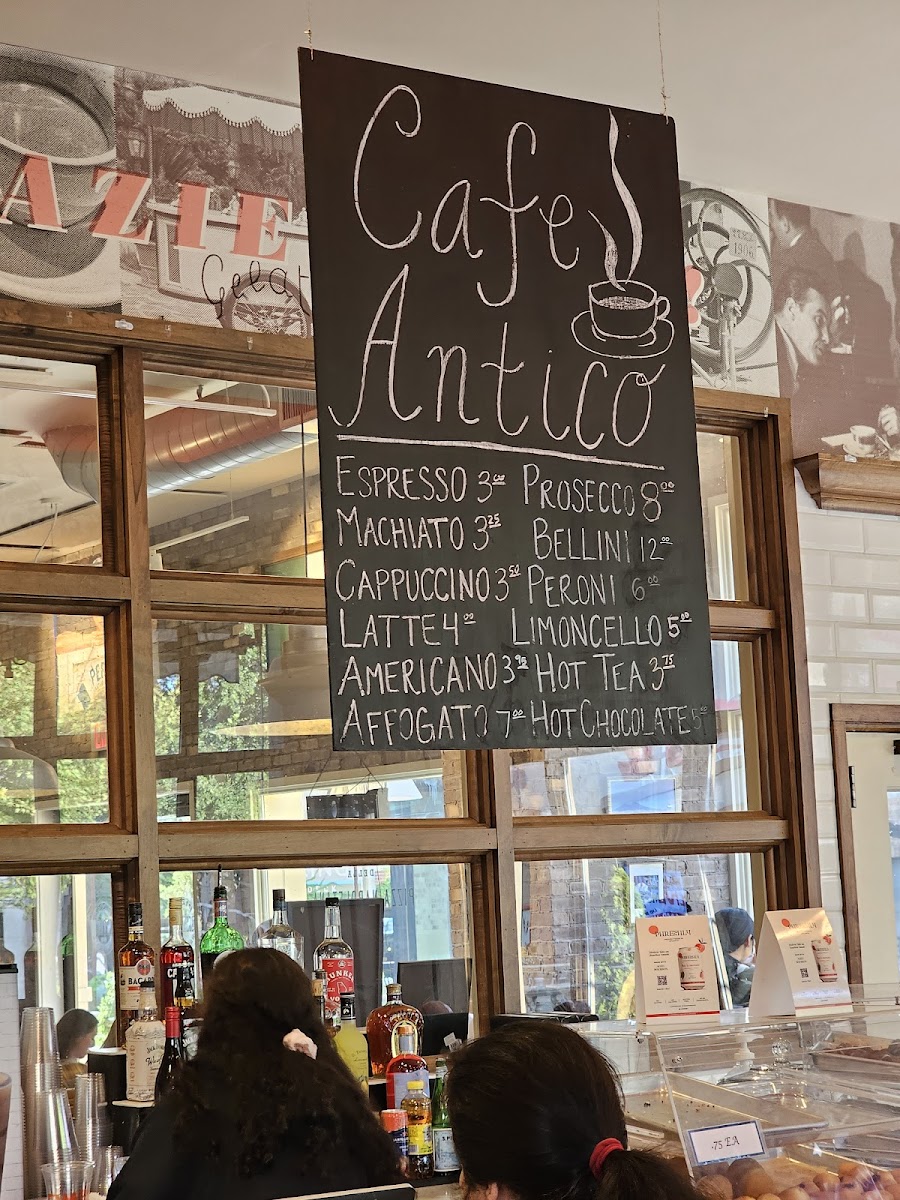 AZIE
Gelat
1906
Cafe
Antico
ESPRESSO 3.00 PROSECCO 8.00
MACHIATO 3.25 BELLINI 12.00
CAPPUCCINO 3.50 PERONI 6.00
LATTE 4.00 LIMONCELLO 5.00
AMERICANO 3.25 HOT TEA 3.75
AFFOGATO 7.00 HOT CHOCOLATE 5.00
.75 EA